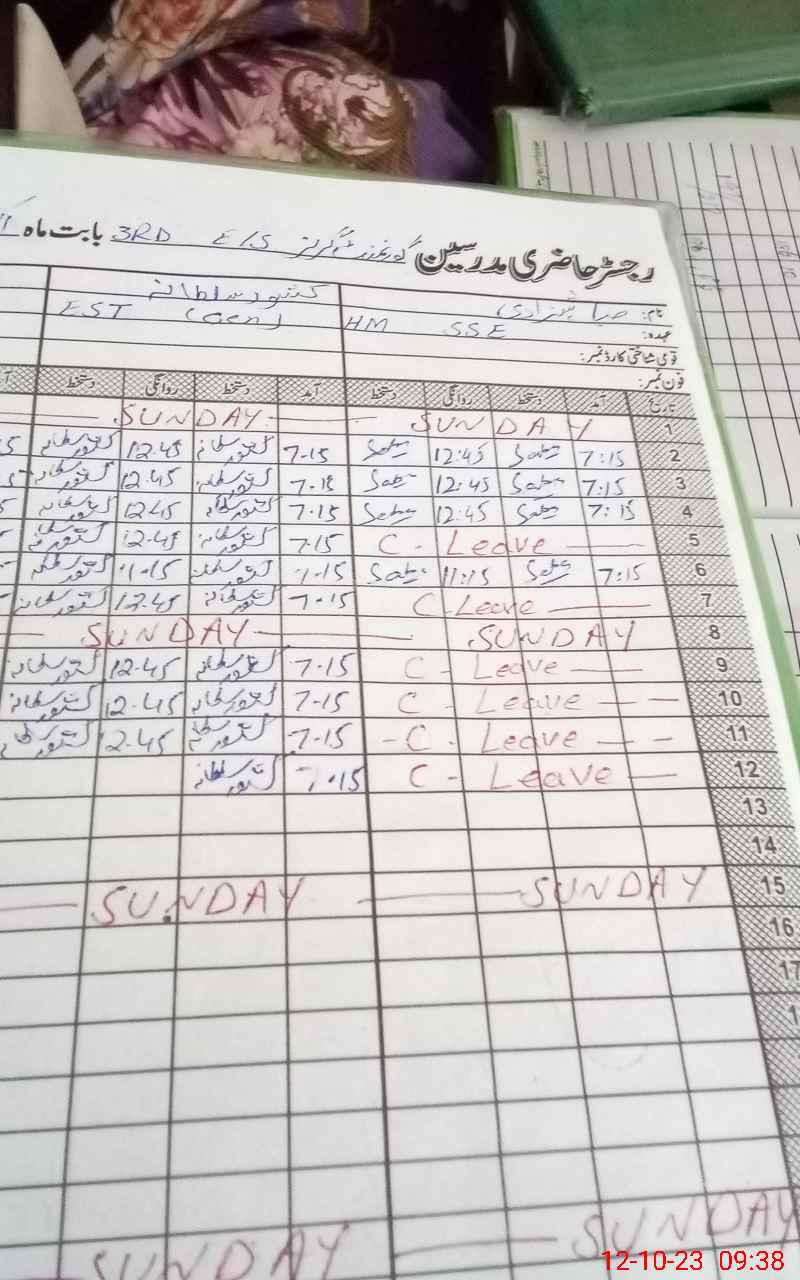 رجسٹر حاضری مدرسین گورنمنٹ گرلز E/S 3RD بابت ماہ
نام: صبا شہزادی کشور سلطانہ
عہدہ: SSE HM EST (Gen)
قومی شناختی کارڈ نمبر:
فون نمبر:
تاریخ آمد دستخط روانگی دستخط آمد دستخط روانگی دستخط
1 SUNDAY SUNDAY
2 7:15 Saba 12:45 Saba 7-15 کشور سلطانہ 12.45 کشور سلطانہ
3 7:15 Saba 12:45 Saba 7.15 کشور سلطانہ 12.45 کشور سلطانہ
4 7:15 Saba 12:45 Saba 7.15 کشور سلطانہ 12.45 کشور سلطانہ
5 C - Leave 7.15 کشور سلطانہ 12.45 کشور سلطانہ
6 7:15 Saba 11:15 Saba 7-15 کشور سلطانہ 11-15 کشور سلطانہ
7 C - Leave 7-15 کشور سلطانہ 12.45 کشور سلطانہ
8 SUNDAY SUNDAY
9 C - Leave 7-15 کشور سلطانہ 12.45 کشور سلطانہ
10 C - Leave 7-15 کشور سلطانہ 12.45 کشور سلطانہ
11 - C - Leave 7-15 کشور سلطانہ 12.45 کشور سلطانہ
12 C - Leave 7.15 کشور سلطانہ
13
14
15 SUNDAY SUNDAY
16
17
SUNDAY SUNDAY
12-10-23 09:38